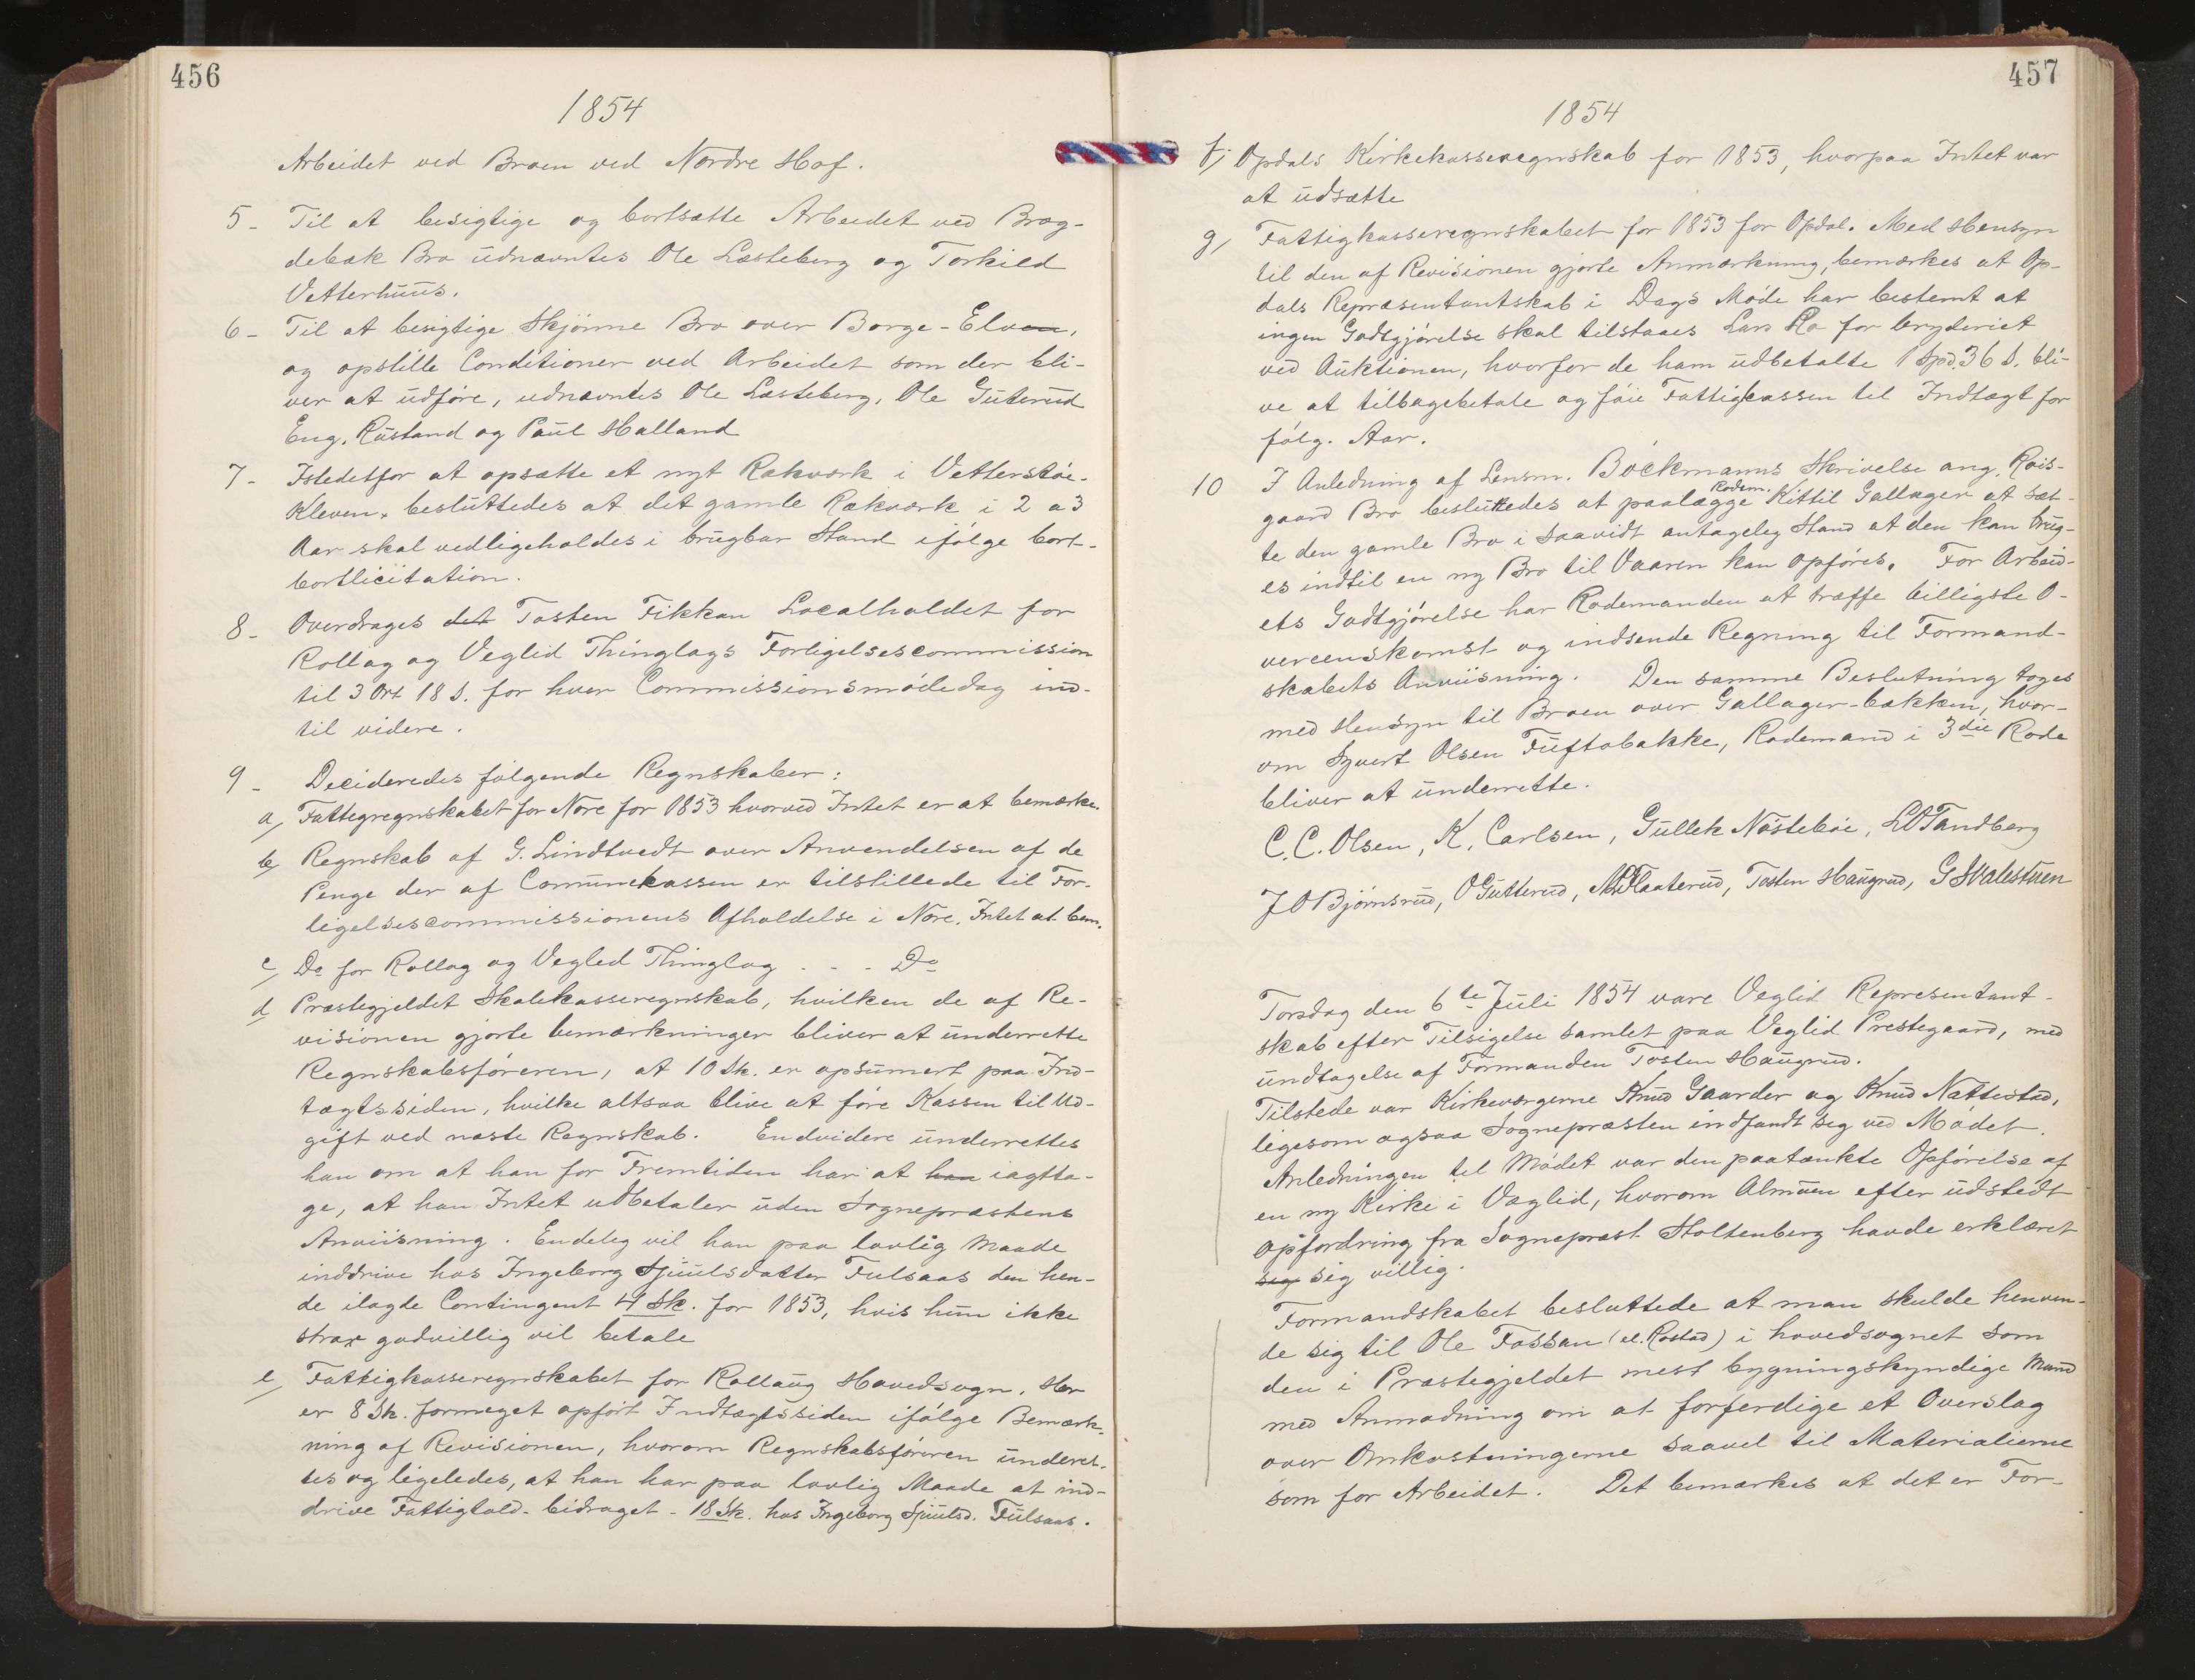 456
1854
Arbeidet ved Broen ved Nordre Hof.
5- Til at besigtige og bortsætte Arbeidet ved Brog-
debæk Bro udnævntes Ole Læsteberg og Torkild
Vetterhuus.
6- Til at besigtige Skjønne Bro over Borge-Elven,
og opstille Conditioner ved Arbeidet som der bli-
ver at udføre, udnævntes Ole Læsteberg, Ole Guterud
Eng. Rustand og Paul Halland
7- Istedetfor at opsætte et nyt Rækværk i Vetterstøe-
Kleven, besluttedes at det gamle Rækværk i 2 a 3
Aar skal vedligeholdes i brugbar Stand ifølge bort-
bortlicitation.
8- Overdrages det Tosten Fikkan Localholdet for
Rollag og Veglid Thinglags Forligelsescommission
til 3 Ort 18 s. for hver Commissionsmødedag ind-
til videre.
9- Decideredes følgende Regnskaber:
a, Fattegregnskabet for Nore for 1853 hvorved Intet er at bemærke.
b, Regnskab af G. Lindtvedt over Anvendelsen af de
Penge der af Comunekassen er tilstillede til For-
ligelsescommissionens Afholdelse i Nore, Intet at bem.
c, Do for Rollag og Vegled Thinglag - - - Do
d, Præstegjeldet Skolekasseregnskab, hvilken de af Re-
visionen gjorte bemærkninger bliver at underrette
Regnskabsføreren, at 10 Sk. er opsumert paa Ind-
tægtssiden, hvilke altsaa blive at føre Kassen til Ud-
gift ved næste Regnskab. Endvidere underrettes
han om at han for Fremtiden har at han iagtta-
ge, at han Intet udbetaler uden Sognepræstens
Anviisning. Endelig vil han paa lovlig Maade
inddrive hos Ingeborg Sjuulsdatter Fulsaas den hen-
de ilagde Contingent 4 Sk. for 1853, hvis hun ikke
strax godvillig vil betale
e, Fattigkasseregnskabet for Rollaug Hovedsogn. Her
er 8 Sk. formeget opført Indtægtssiden ifølge Bemærk-
ning af Revisionen, hvorom Regnskabsføreren underet-
tes og ligeledes, at han har paa lovlig Maade at ind-
drive Fattigtold-bidraget - 18 Sk. hos Ingeborg Sjuulsd. Fulsaas.
457
1854
f; Opdals Kirkekasseregnskab for 1853, hvorpaa Intet var
at udsætte
g, Fattigkasseregnskabet for 1853 for Opdal. Med Hensyn
til den af Revisionen gjorte Anmærkning, bemærkes at Op-
dals Repræsentantskab i Dags Møde har bestemt at
ingen Godtgjørelse skal tilstaaes Lars Ro for bryderiet
ved Auktionen, hvorfor de ham udbetalte 1 Spd. 36 s. bli-
ve at tilbagebetale og føie Fattigkassen til Indtægt for
følg. Aar.
10 I Anledning af Lensm. Böckmanns Skrivelse ang. Rois-
gaard Bro besluttedes at paalægge Rodem. Kittil Gallager at sæt-
te den gamle Bro i saavidt antagelig Stand at den kan brug-
es indtil en ny Bro til Vaaren kan opføres. For Arbeid-
ets Godtgjørelse har Rodemanden at træffe billigste O-
vereenskomst og indsende Regning til Formand-
skabets Anviisning. Den samme Beslutning toges
med Hensyn til Broen over Gallager-bækken, hvor-
om Syvert Olsen Tuftobakke, Rodemand i 3die Rode
bliver at underrette.
C. C. Olsen, K. Carlsen, Gullek Nøstebøe, L O Tandberg
J O Bjørnsrud, O Gutterud, Flaaterud, Tosten Haugrud, G Hvalestuen
Torsdag den 6te Juli 1854 vare Veglid Representant-
skab efter Tilsigelse samlet paa Veglid Prestegaard, med
undtagelse af Formanden Tosten Haugrud.
Tilstede var Kirkeværgerne Knud Gaarder og Knud Nattestad,
ligesom ogsaa Sognepræsten indfandt sig ved Mødet.
Anledningen til Mødet var den paatænkte Opførelse af
en ny Kirke i Væglid, hvorom Almuen efter udstedt
opfordring fra Sogneprest Stoltenberg havde erklæret
sog sig villig.
Formandskabet besluttede at man skulde henven-
de sig til Ole Fossan (el. Rostad) i hovedsognet som
den i Præstegjeldet mest bygningskyndige Mand
med Anmodning om at forferdige et Overslag
over Omkostningerne saavel til Materialierne
som for Arbeidet. Det bemærkes at det er For-